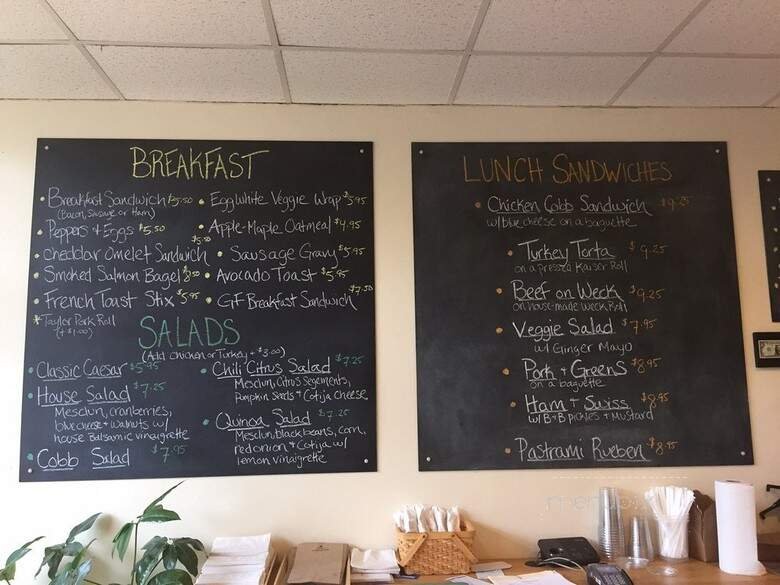 BREAKFAST
• Breakfast Sandwich $5.50
(Bacon, Sausage or Ham)
• Peppers + Eggs $5.50
• Cheddar Omelet Sandwich $5.50
• Smoked Salmon Bagel $8.50
• French Toast Stix $5.95
* Taylor Pork Roll
(+ $1.00)
• Egg White Veggie Wrap $5.95
• Apple-Maple Oatmeal $4.95
• Sausage Gravy $5.95
• Avocado Toast $5.95
• GF Breakfast Sandwich $7.50
SALADS
(Add Chicken or Turkey + $3.00)
• Classic Caesar $5.95
• House Salad $7.25
Mesclun, cranberries,
blue cheese + walnuts w/
house Balsamic vinaigrette
• Cobb Salad $7.95
• Chili Citrus Salad $7.25
Mesclun, Citrus Segements,
Pumpkin Seeds + Cotija Cheese
• Quinoa Salad $7.25
Mesclun, black beans, corn,
red onion + Cotija w/
lemon vinaigrette
LUNCH SANDWICHES
• Chicken Cobb Sandwich $9.25
w/ blue cheese on a baguette
• Turkey Torta $9.25
on a pressed Kaiser Roll
• Beef on Weck $9.25
on house-made Weck Roll
• Veggie Salad $7.95
w/ Ginger Mayo
• Pork + Greens $8.95
on a baguette
• Ham + Swiss $8.95
w/ B+B pickles + Mustard
• Pastrami Rueben $8.95
menu